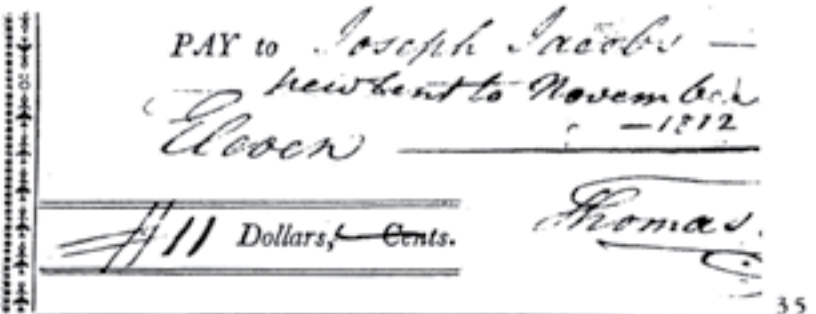 PAY to Joseph Jacobs —
to November
— 1812
Eleven
11 Dollars, Cents.
Thomas
35